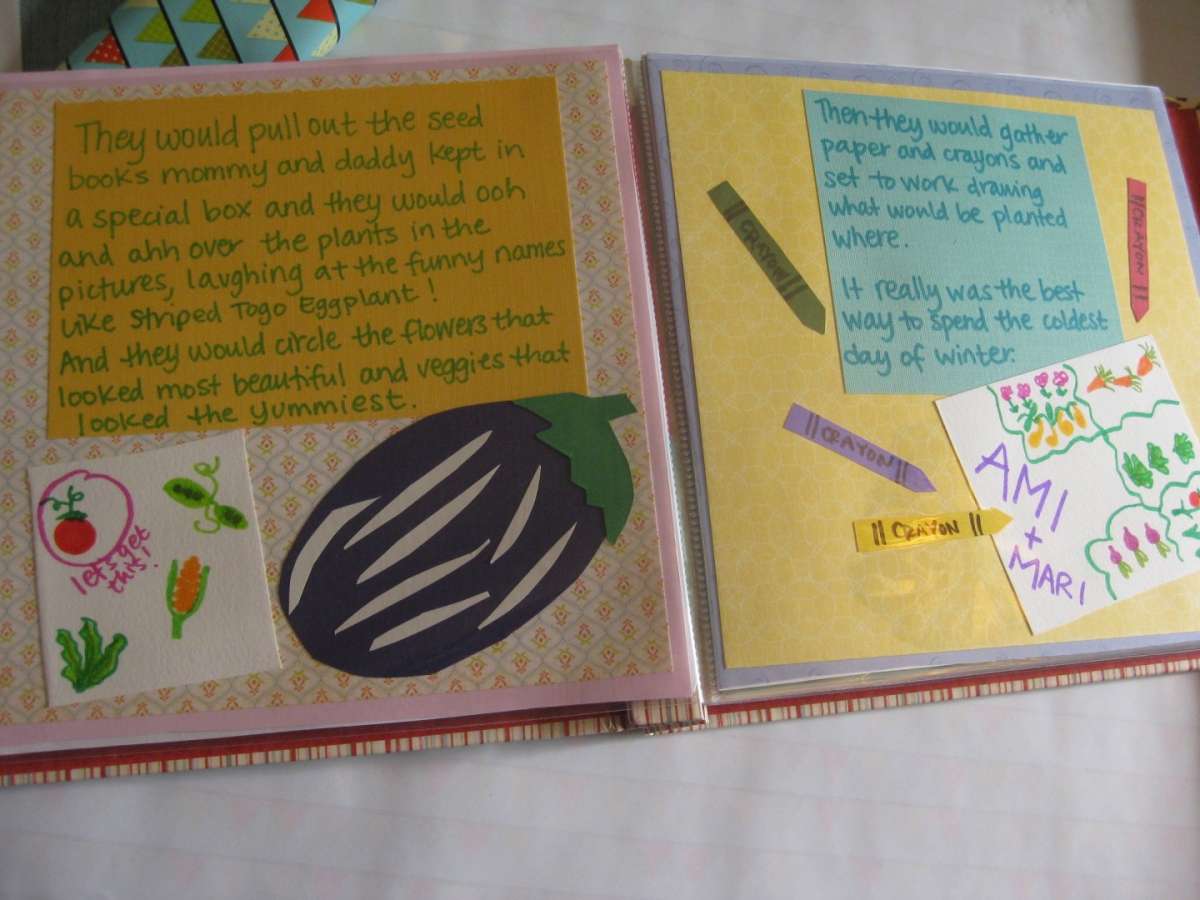 They would pull out the seed
books mommy and daddy kept in
a special box and they would ooh
and ahh over the plants in the
pictures, laughing at the funny names
like Striped Togo Eggplant!
And they would circle the flowers that
looked most beautiful and veggies that
looked the yummiest.
let's get
this!
Then they would gather
paper and crayons and
set to work drawing
what would be planted
where.
It really was the best
way to spend the coldest
day of winter.
CRAYON
CRAYON
CRAYON
CRAYON
AMI
+
MARI